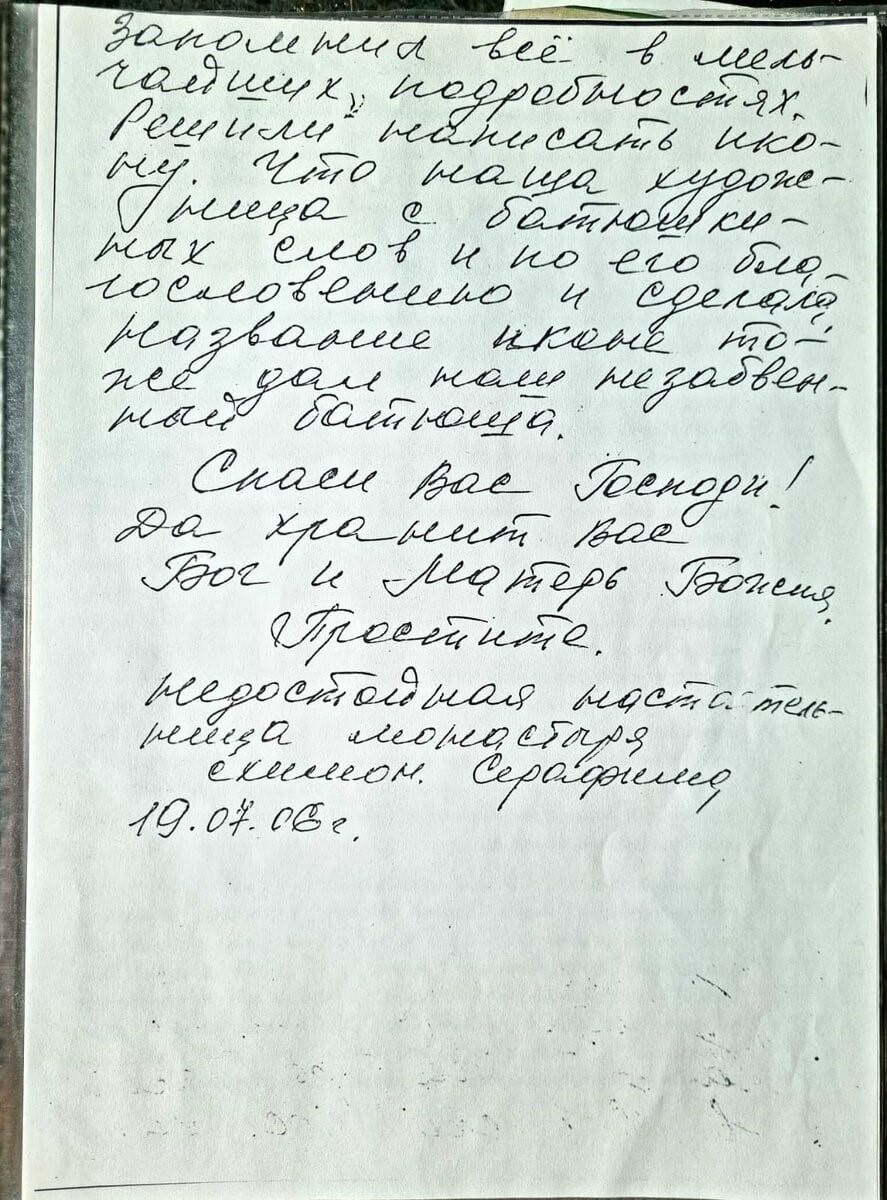 Запомнил всё в мель-
чайших подробностях.
Решили написать ико-
ну. Что наша худож-
ница с батюшки-
ных слов и по его бла-
гословению и сделала,
название иконе то-
же дал наш незабвен-
ный батюшка.
Спаси Вас Господи!
Да хранит Вас
Бог и Матерь Божия.
Простите.
недостойная настоятель-
ница монастыря
схимон. Серафима
19.07.06г.